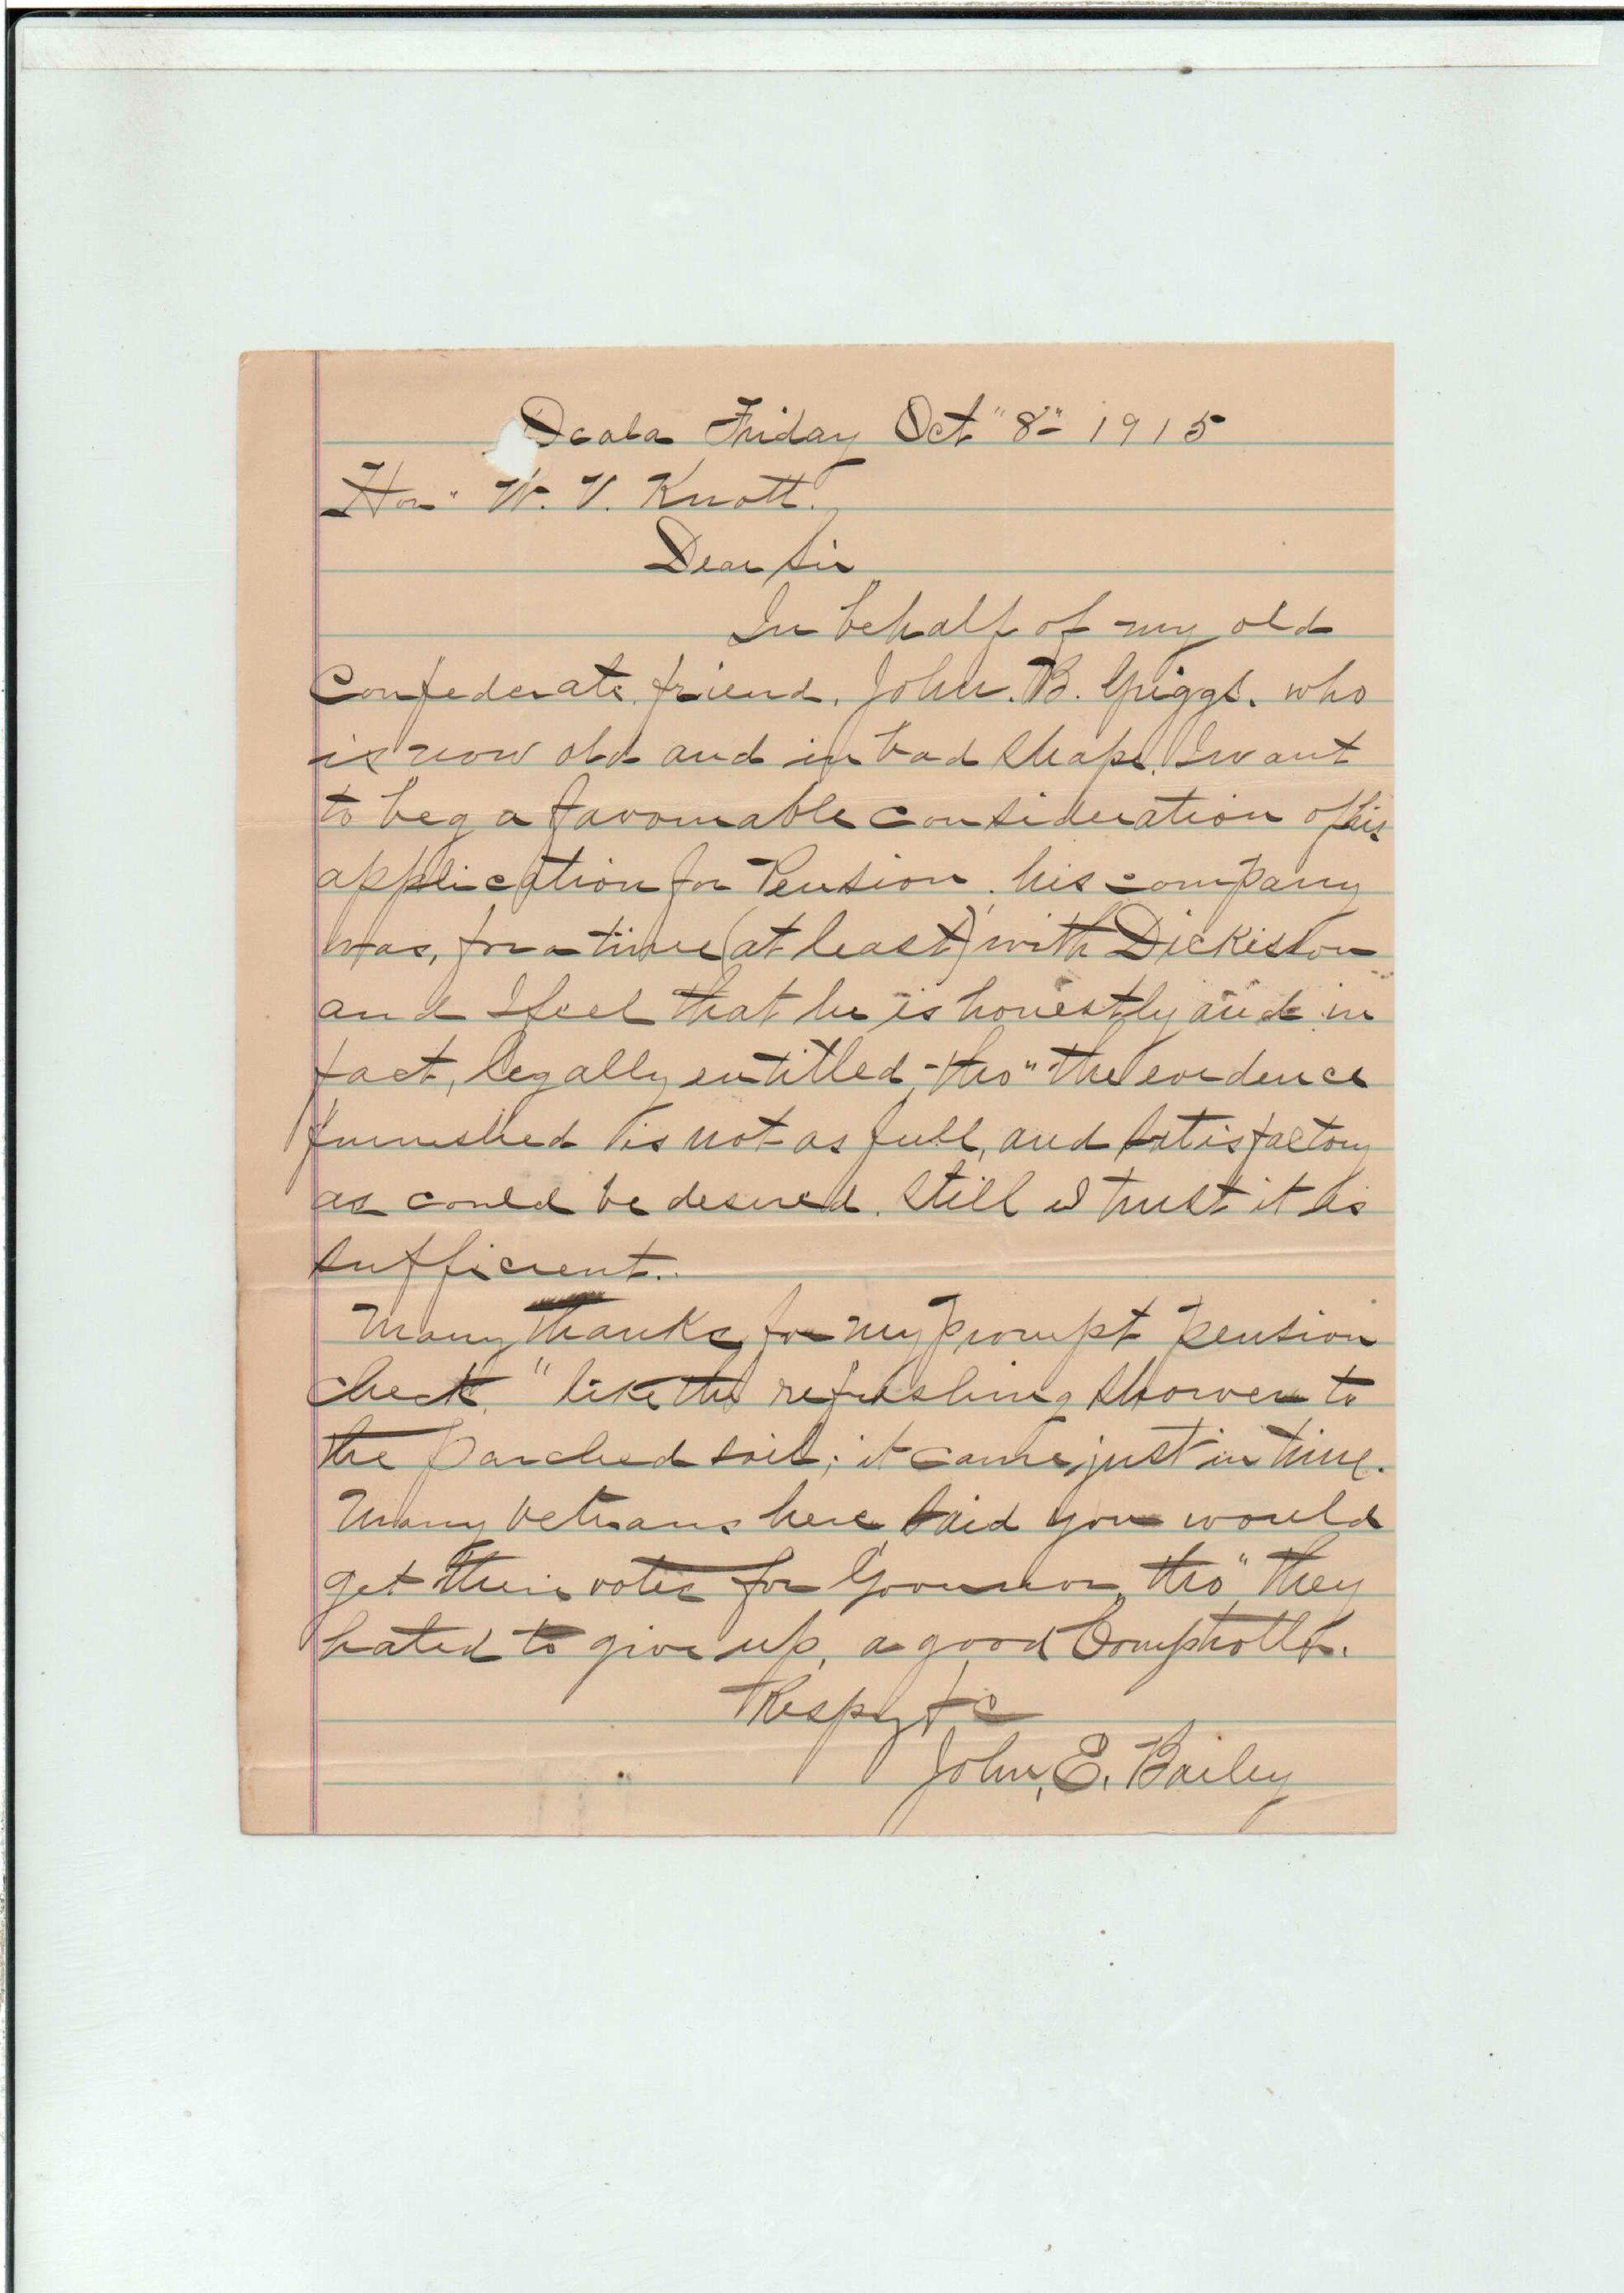 Ocala Friday Oct "8" 1915
Hon" W. V. Knott.
Dear Sir
In behalf of my old
Confederate friend, John. B. Griggs. who
is now old and in bad shape, I want
to beg a favourable consideration of his
application for Pension. his company
was, for a time (at least) with Dickison
and I feel that he is honestly and in
fact, legally entitled, tho" the evidence
furnished is not as full, and satisfactory
as could be desired. Still I trust it is
sufficient.
Many thanks for my prompt pension
check, "like the refreshing shower to
the parched soil; it came just in time.
Many Vetrans here said you would
get their votes for Governor, tho" they
hated to give up, a good Comptroller.
Respy &c
John, E. Bailey